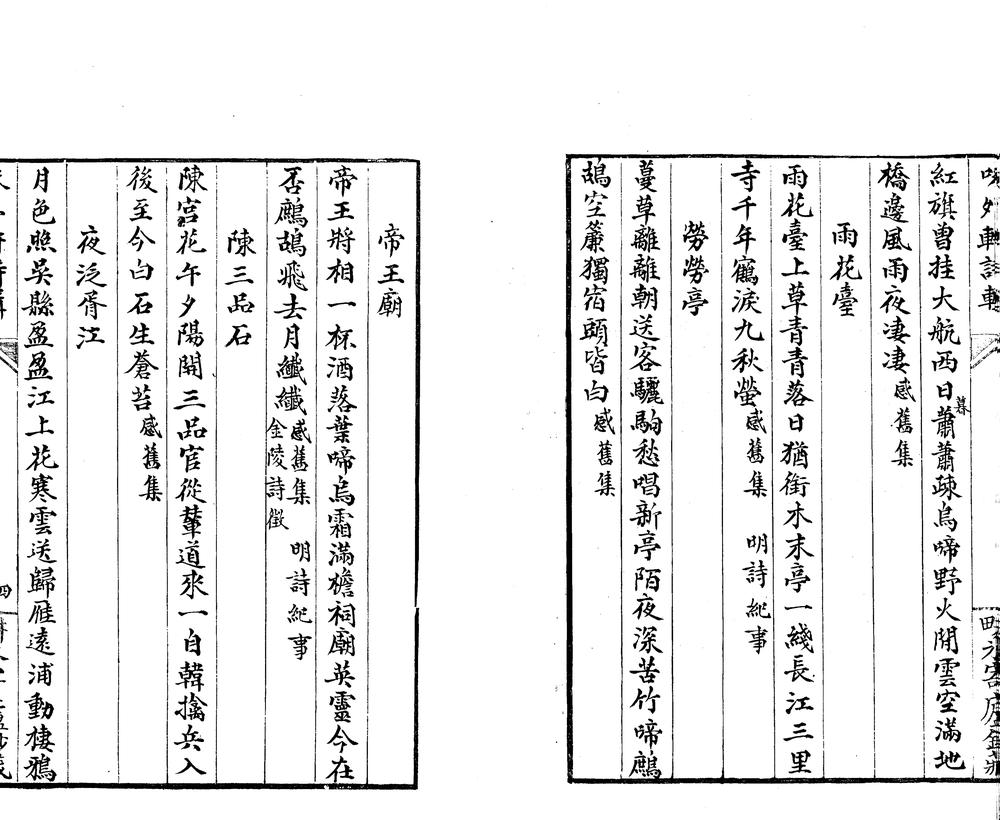 紅旗曾挂大航西日蕭蕭疎烏啼野火閒雲空滿地
暮
橋邊風雨夜凄凄感舊集
雨花臺
雨花臺上草青青落日猶銜木末亭一綫長江三里
寺千年鶴淚九秋螢感舊集 明詩紀事
勞勞亭
蔓草離離朝送客驪駒愁唱新亭陌夜深苦竹啼鷓
鴣空簾獨宿頭皆白感舊集
帝王廟
帝王將相一杯酒落葉啼烏霜滿檐祠廟英靈今在
否鷓鴣飛去月纖纖感舊集 明詩紀事
金陵詩徵
陳三品石
陳宮花午夕陽開三品官從輦道來一自韓擒兵入
後至今白石生蒼苔感舊集
夜泛胥江
月色照吳縣盈盈江上花寒雲送歸雁遠浦動棲鴉
四